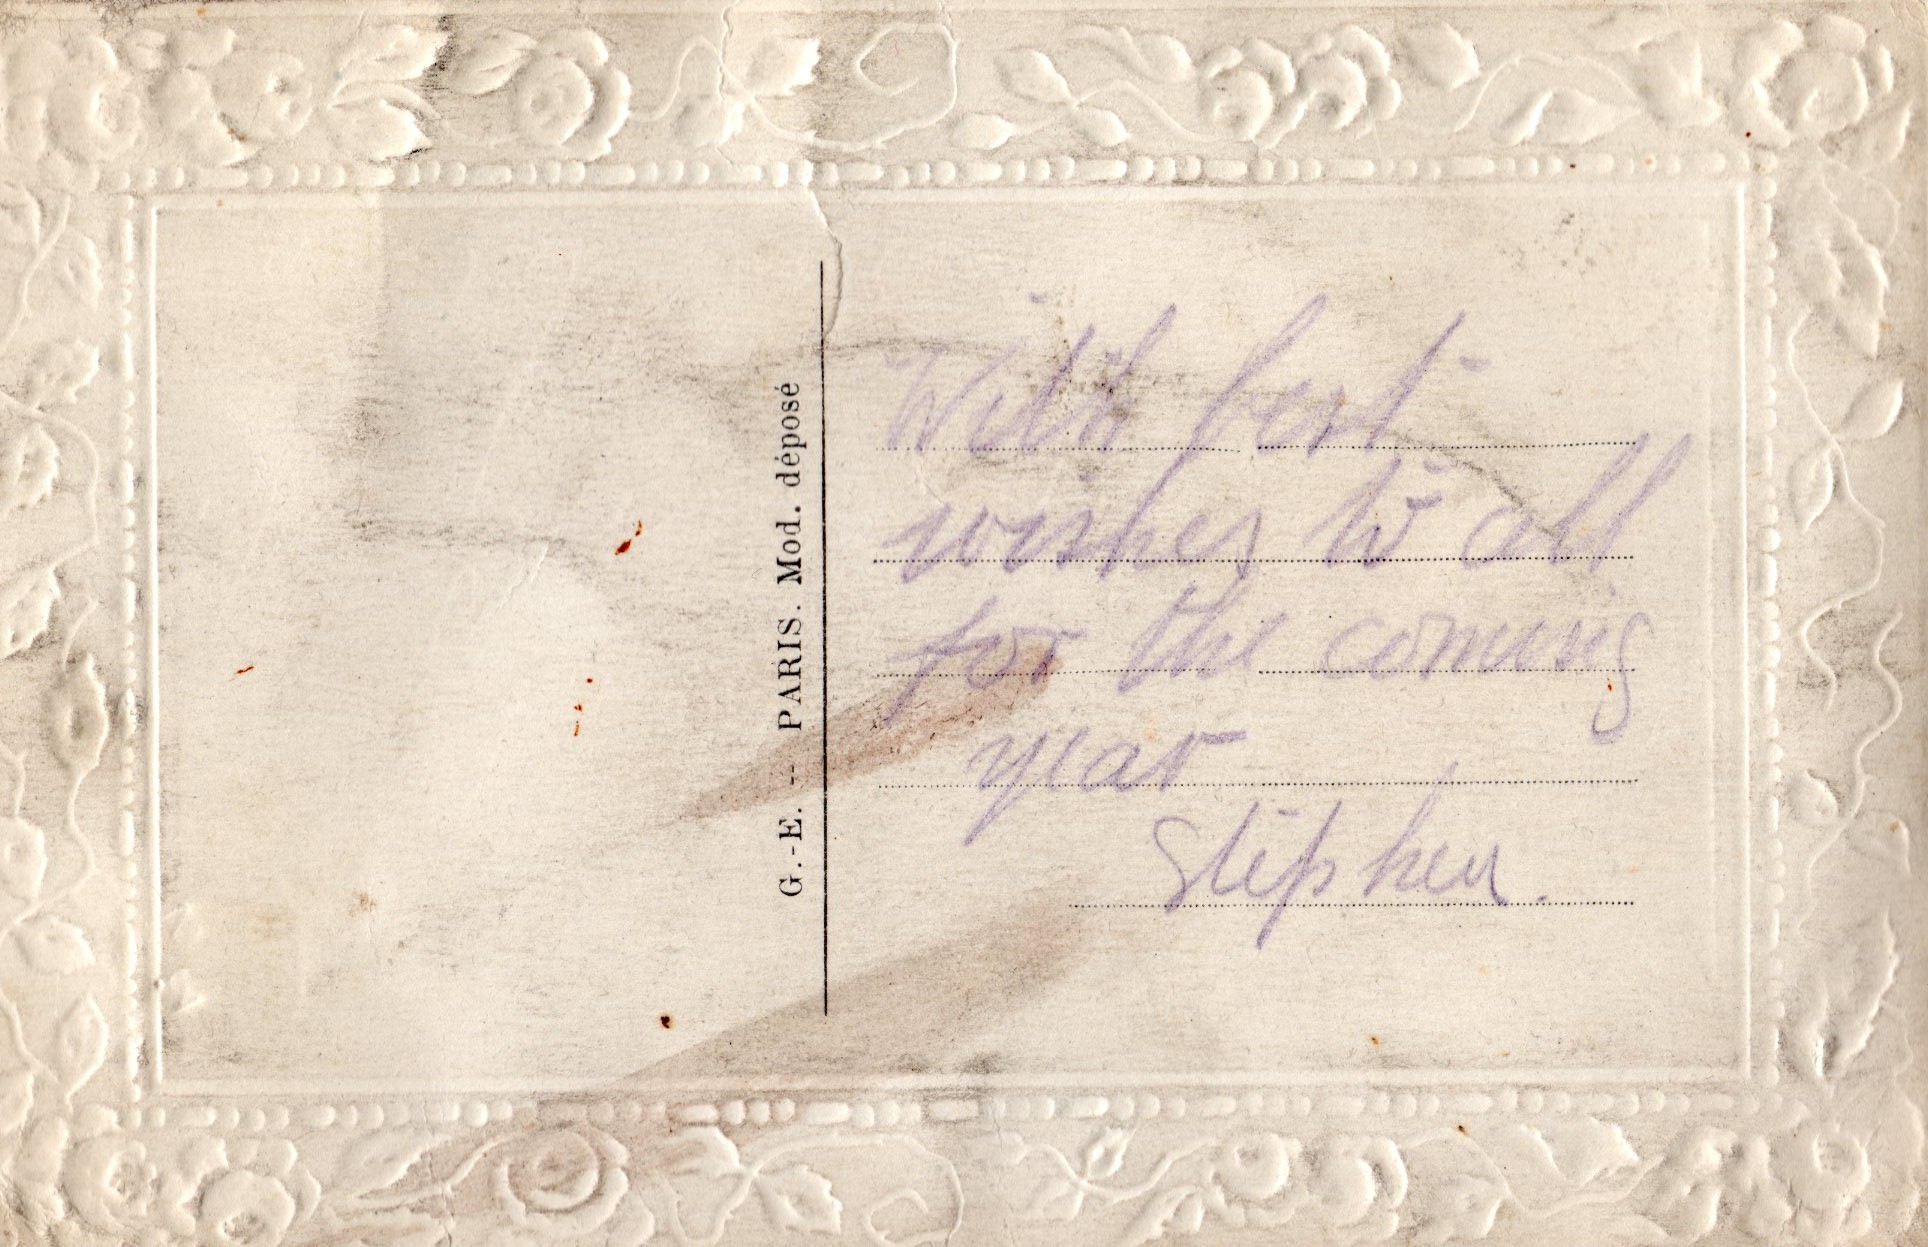 G.-E. -- PARIS. Mod. déposé
With best
wishes to all
for the coming
year
Stephen.